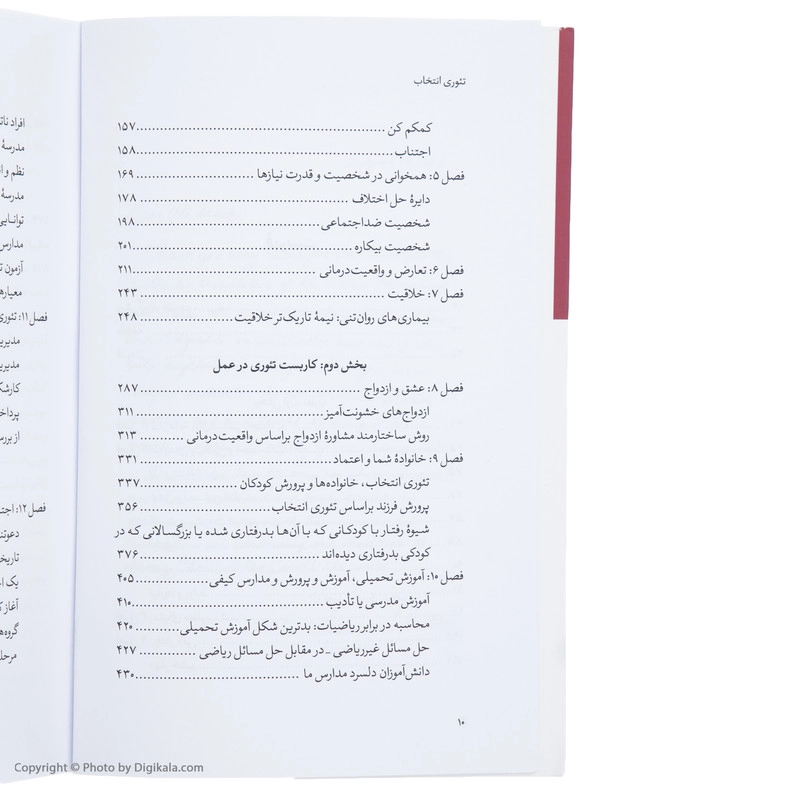 تئوری انتخاب
کمکم کن ........ ۱۵۷
اجتناب ........ ۱۵۸
فصل ۵: همخوانی در شخصیت و قدرت نیازها ........ ۱۶۹
دایرهٔ حل اختلاف ........ ۱۷۸
شخصیت ضداجتماعی ........ ۱۹۸
شخصیت بیکاره ........ ۲۰۱
فصل ۶: تعارض و واقعیت‌درمانی ........ ۲۱۱
فصل ۷: خلاقیت ........ ۲۴۳
بیماری‌های روان‌تنی: نیمهٔ تاریک‌تر خلاقیت ........ ۲۴۸
بخش دوم: کاربست تئوری در عمل
فصل ۸: عشق و ازدواج ........ ۲۸۷
ازدواج‌های خشونت‌آمیز ........ ۳۱۱
روش ساختارمند مشاورهٔ ازدواج براساس واقعیت‌درمانی ........ ۳۱۳
فصل ۹: خانوادهٔ شما و اعتماد ........ ۳۳۱
تئوری انتخاب، خانواده‌ها و پرورش کودکان ........ ۳۳۷
پرورش فرزند براساس تئوری انتخاب ........ ۳۵۶
شیوهٔ رفتار با کودکانی که با آن‌ها بدرفتاری شده یا بزرگسالانی که در
کودکی بدرفتاری دیده‌اند ........ ۳۷۶
فصل ۱۰: آموزش تحمیلی، آموزش و پرورش و مدارس کیفی ........ ۴۰۵
آموزش مدرسی یا تأدیب ........ ۴۱۰
محاسبه در برابر ریاضیات: بدترین شکل آموزش تحمیلی ........ ۴۲۰
حل مسائل غیرریاضی ـ در مقابل حل مسائل ریاضی ........ ۴۲۷
دانش‌آموزان دلسرد مدارس ما ........ ۴۳۰
۱۰
افراد
مدرسهٔ
نظم و
مدرسهٔ
توانایی
مدارس
آزمون
معیارها
فصل ۱۱: تئوری
مدیر
مدیر
از
فصل ۱۲:
یک
آغاز
Copyright © Photo by Digikala.com